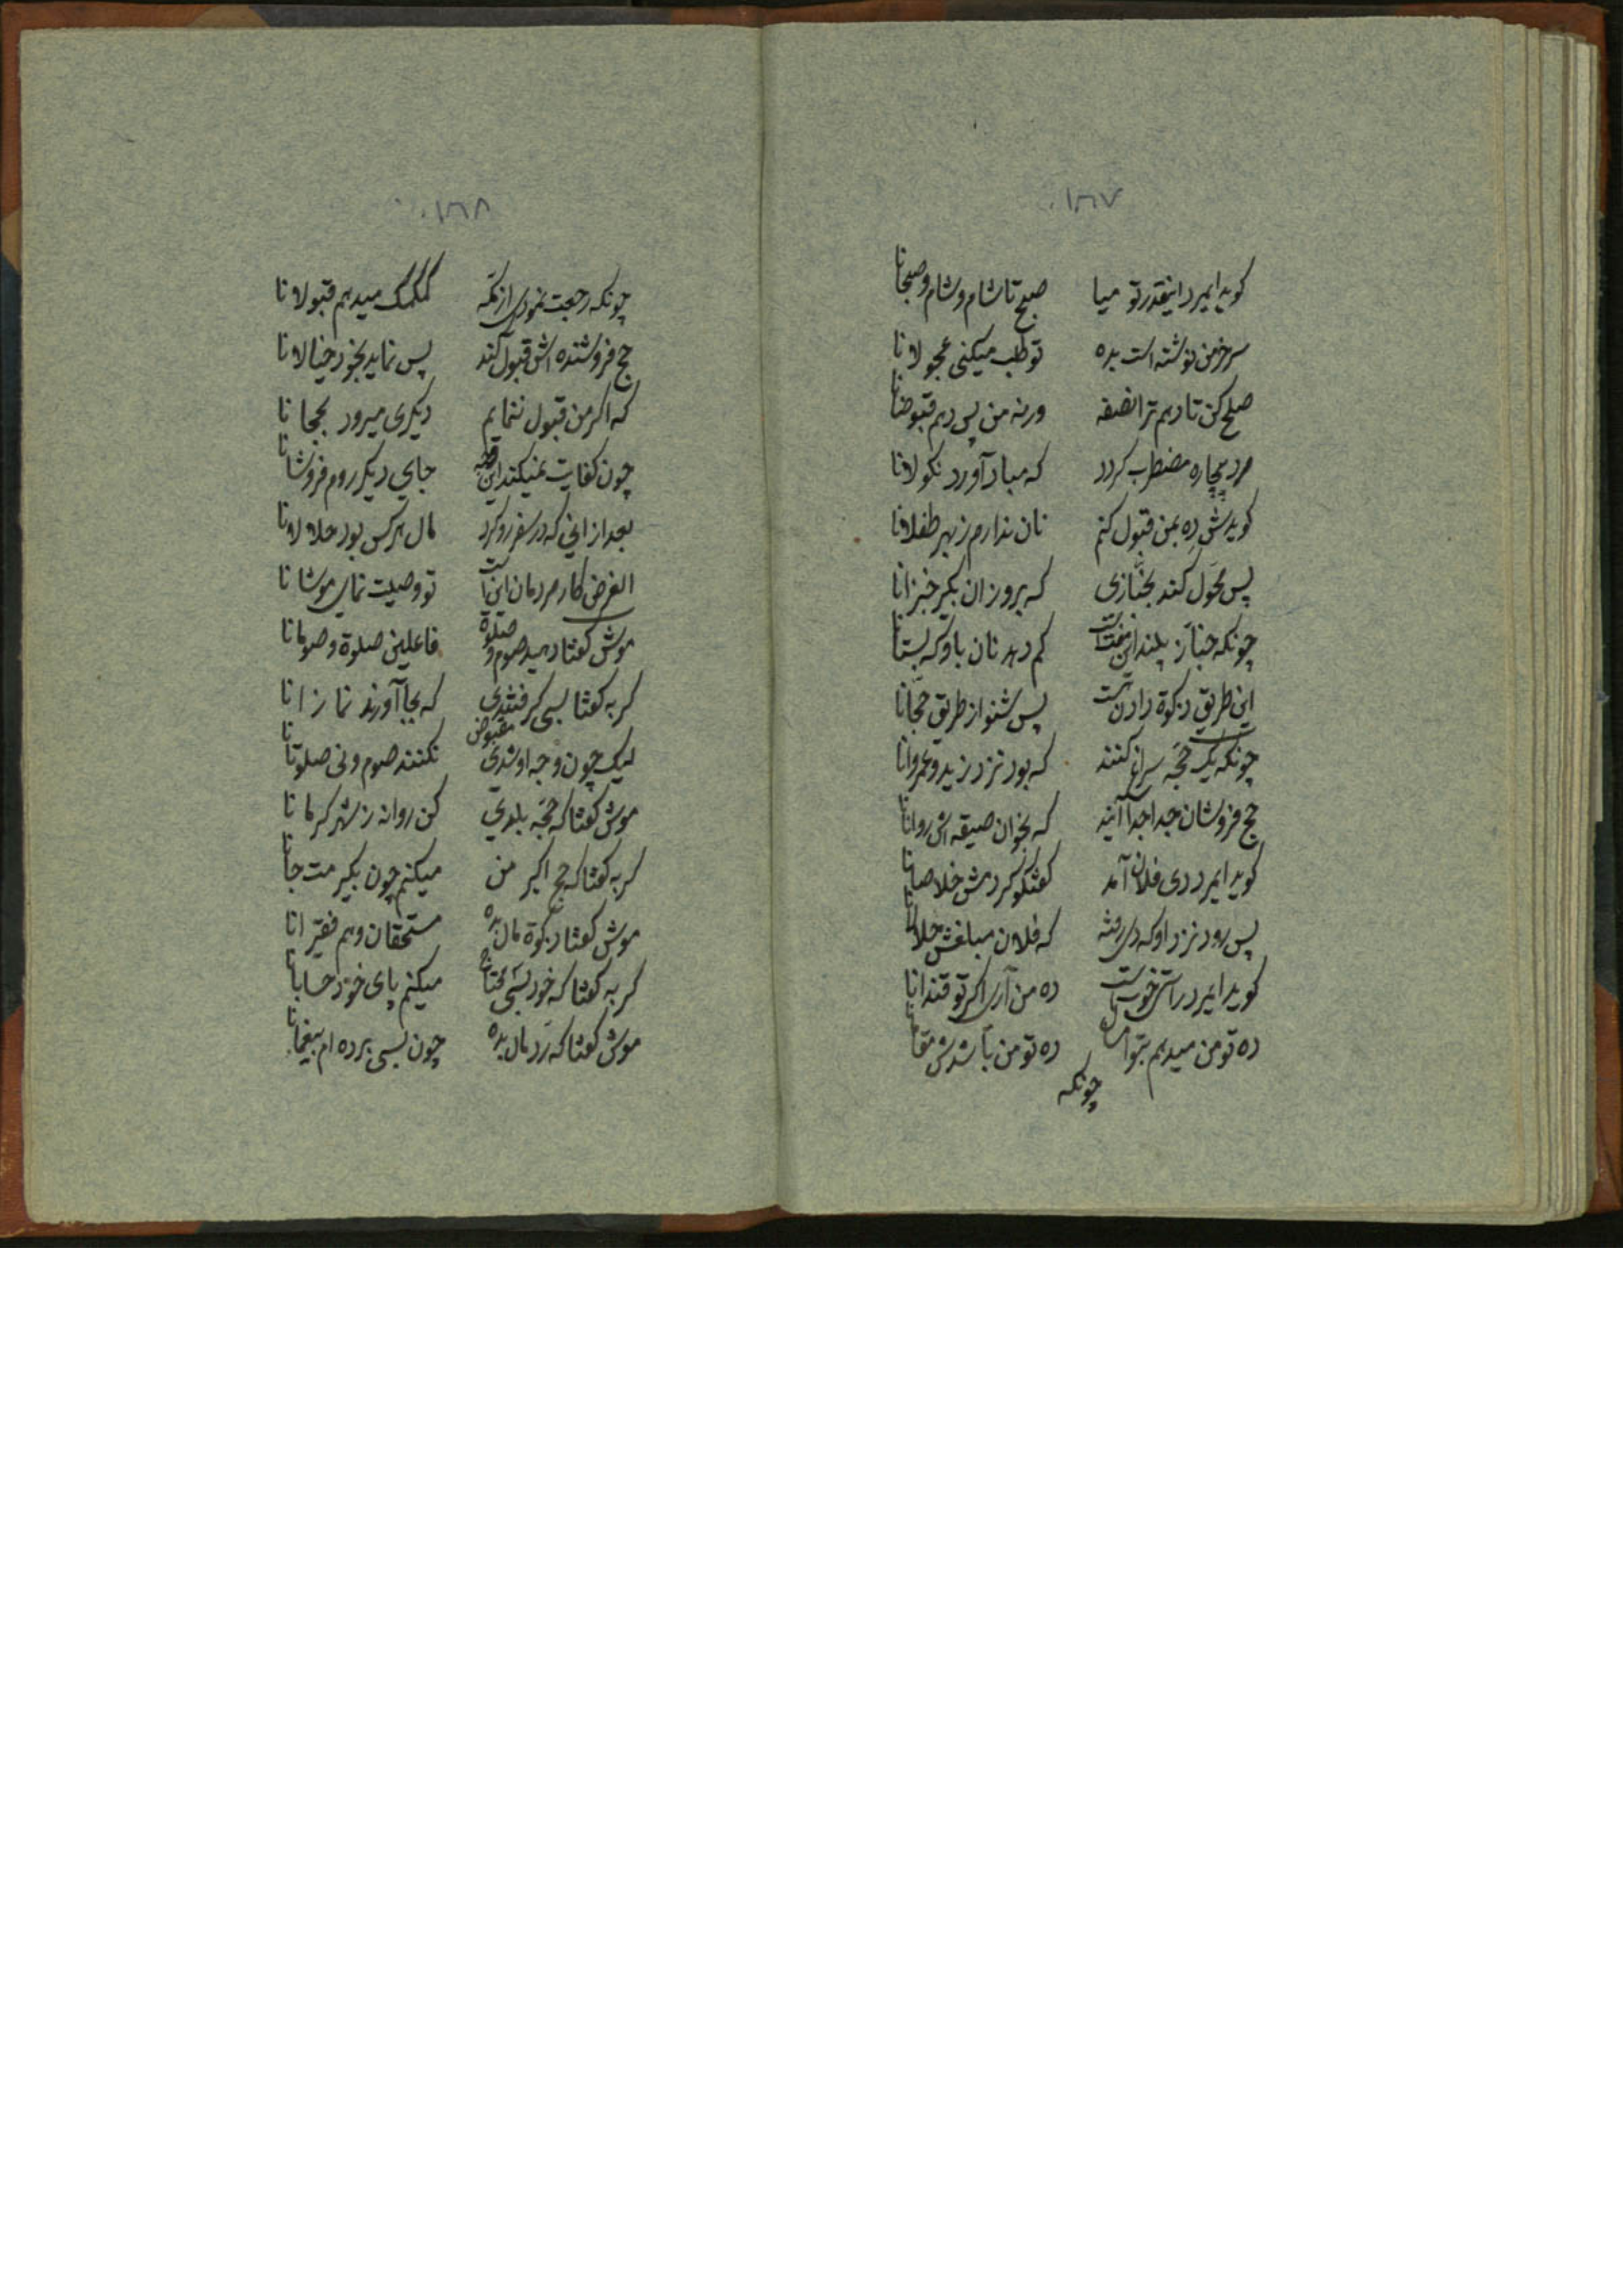 ۱۶۷
کوید ایمرد اینقدر تو میا صبح تا شام و شام و صبحانا
سر خرمن نوشته است بده تو طلب میکنی عجولانا
صلح کن تا دهم ترا نصفه ورنه من پس دهم قبوضانا
مرد بیچاره مضطرب کردد که مباد آورد نکولانا
کویدش ده بمن قبول کنم نان ندارم ز بهر طفلانا
پس محول کند بخبازی که برو زان بکیر خبزانا
چونکه خباز بیند این مفت است کم دهد نان باو که بستانا
این طریق زکوة دادن تست پس شنو از طریق حجانا
چونکه یک حجه سراغ کنند که بود نزد زید و عمروانا
حج فروشان جدا جدا آیند که بخوان صیغه اش روانانا
کوید ایمرد دی فلان آمد کفتکو کردمش خلاصانا
پس رود نزد او که دی رفته که فلان مبلغش حلالانا
کوید ایمرد راستی خوبست ده من آری اکر تو قندانا
ده تو من میدهم بتو امسال ده تو من باشدش مقامانا
چونکه
۱۶۸
چونکه رجعت نمودی از مکه کمکمک میدهم قبولانا
حج فروشنده اش قبول کند پس نماید بخود خیالانا
که اکر من قبول ننمایم دیکری میرود بحجانا
چون کفایت نمیکند این وجه جای دیکر روم فروشانا
بعد از انی که در سفر رو کرد مال هرکس بود حلالانا
الغرض کار مردمان اینست تو وصیت نمای موشانا
موش کفتا دهید صوم و صلوة فاعلین صلوة و صومانا
کربه کفتا بسی کرفتندی که بجا آورند نمازانا
لیک چون وجه او شدی مقبوض نکنند صوم و نی صلوتانا
موش کفتا که حجه بلدی کن روانه ز شهر کرمانا
کربه کفتا که حج اکبر من میکنم چون بکیرمت جانا
موش کفتا زکوة مال بده مستحقان و هم فقیرانا
کربه کفتا که خود بسی محتاج میکنم پای خود حسابانا
موش کفتا که رد مال بده چون بسی برده ام بیغمانا